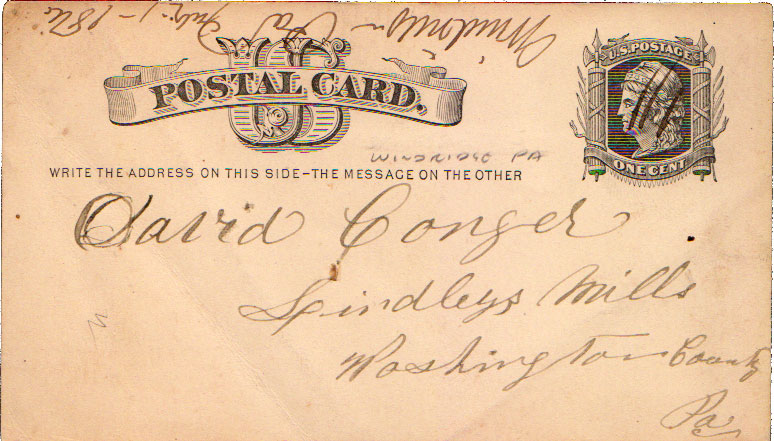 Windridge Pa
July 1 - 1880
US
POSTAL CARD.
U.S. POSTAGE
ONE CENT
WINDRIDGE PA
WRITE THE ADDRESS ON THIS SIDE–THE MESSAGE ON THE OTHER
David Conger
Lindleys Mills
Washington County
Pa